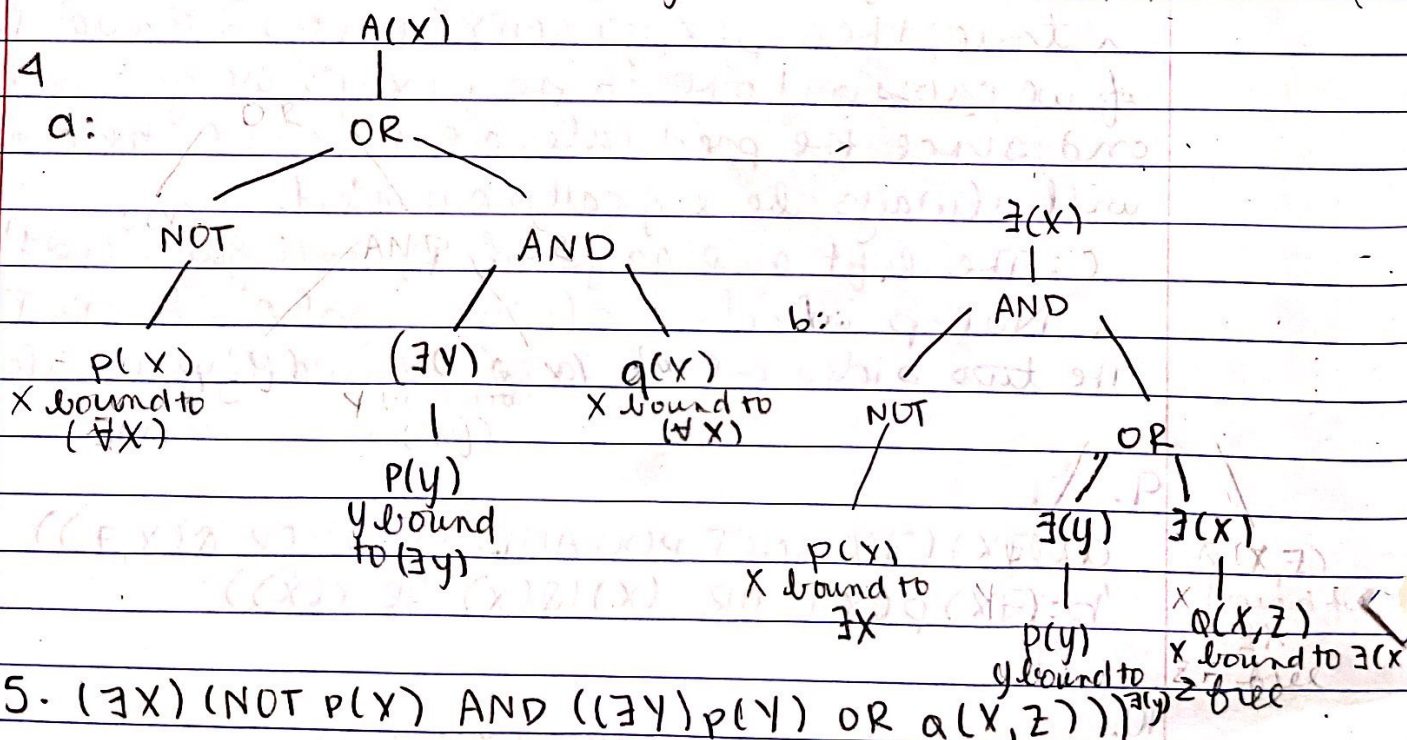 A(X)
4
a:
OR
NOT
AND
p(X)
X bound to
(∀X)
(∃Y)
p(y)
y bound
to (∃y)
q(X)
X bound to
(∀X)
b:
∃(X)
AND
NOT
OR
p(X)
X bound to
∃X
∃(y)
p(y)
y bound to
∃(y)
∃(X)
Q(X,Z)
X bound to ∃(X
Z free
5. (∃X) (NOT p(X) AND ((∃Y) p(Y) OR Q(X,Z)))